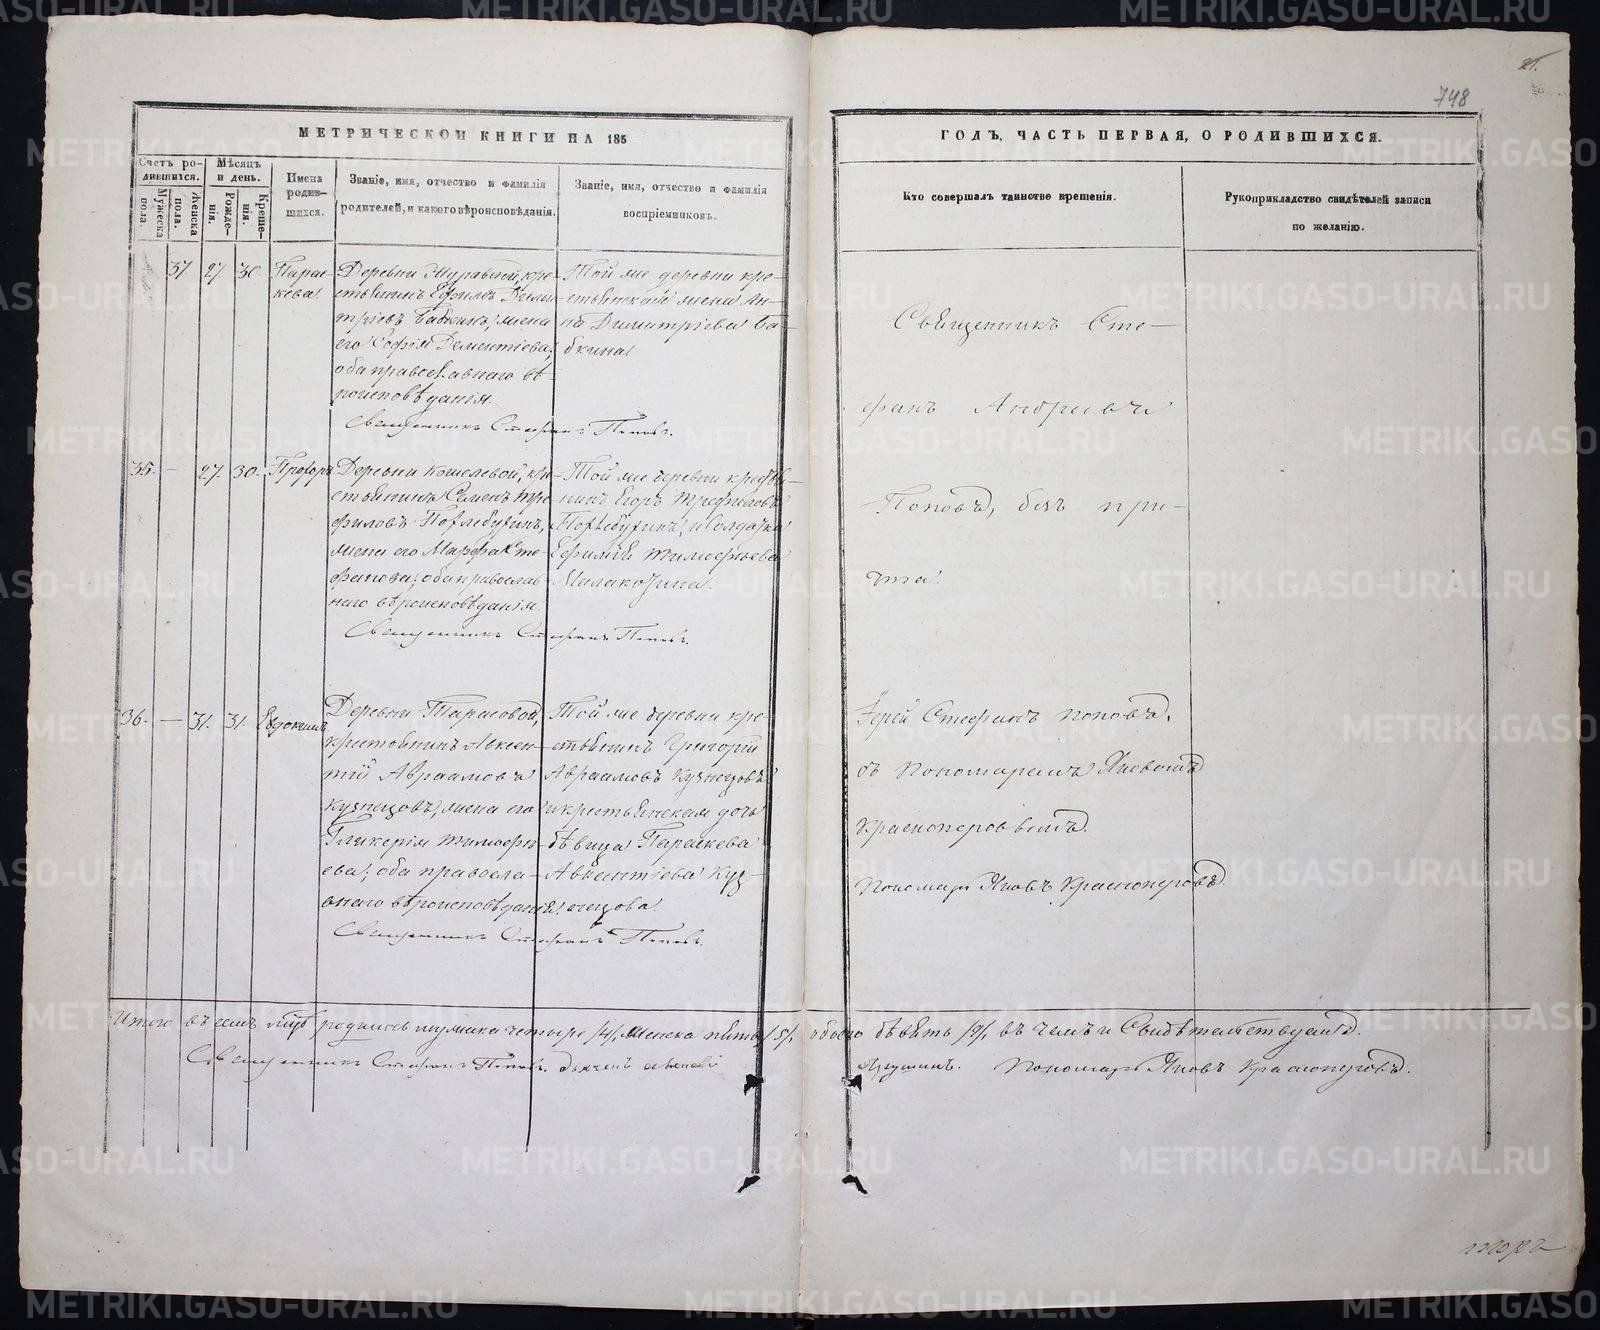 21.
748
МЕТРИЧЕСКОЙ КНИГИ НА 185
ГОДЪ, ЧАСТЬ ПЕРВАЯ, О РОДИВШИХСЯ.
Счетъ ро-
дившихся.
Мужеска
пола.
Женска
пола.
Мѣсяцъ
и день.
Рожде-
нія.
Креще-
нія.
Имена
родив-
шихся.
Званіе, имя, отчество и фамилія
родителей, и какого вѣроисповѣданія.
Званіе, имя, отчество и фамилія
воспріемниковъ.
Кто совершалъ таинство крещенія.
Рукоприкладство свидѣтелей записи
по желанію.
37 27. 30.
Парас-
кева.
Деревни Журавлей, кре-
стьянинъ Ефимъ Дими-
тріевъ Бабкинъ, жена
его Софія Дементіева,
оба православнаго вѣ-
роисповѣданія.
Той же деревни кре-
стьянская жена Ан-
на Димитріева Ба-
бкина.
Священникъ Стефанъ Поповъ.
Священникъ Сте-
фанъ Андреевъ
Поповъ, безъ при-
чта.
35. — 27. 30.
Прохоръ
Деревни Кошелевой, кре-
стьянинъ Семенъ Тре-
филовъ Похлебухинъ,
жена его Марфа Сте-
фанова; оба православ-
наго вѣроисповѣданія.
Той же деревни крестья-
нинъ Егоръ Трефиловъ
Похлебухинъ, и солдатка
Ефимія Тимофеева
Малахова.
Священникъ Стефанъ Поповъ.
36. — 31. 31.
Евдокимъ
Деревни Тарасовой,
крестьянинъ Авксен-
тій Авраамовъ
Кузнецовъ, жена его
Гликерія Тимофе-
ева; оба правосла-
внаго вѣроисповѣданія.
Той же деревни кре-
стьянинъ Григорій
Авраамовъ Кузнецовъ
и крестьянская дочь
дѣвица Параскева
Авксентіева Куз-
нецова.
Священникъ Стефанъ Поповъ.
Іерей Стефанъ Поповъ,
съ Пономаремъ Яковомъ
Красноперовымъ.
Пономарь Яковъ Красноперовъ.
Итого въ семъ мцѣ родилось мужеска четыре /4/, женска пять /5/, обоего дѣвять /9/, въ чемъ и свидѣтельствуютъ.
Священникъ Стефанъ Поповъ. Дьячекъ Алексѣй
Пономарь Яковъ Красноперовъ.